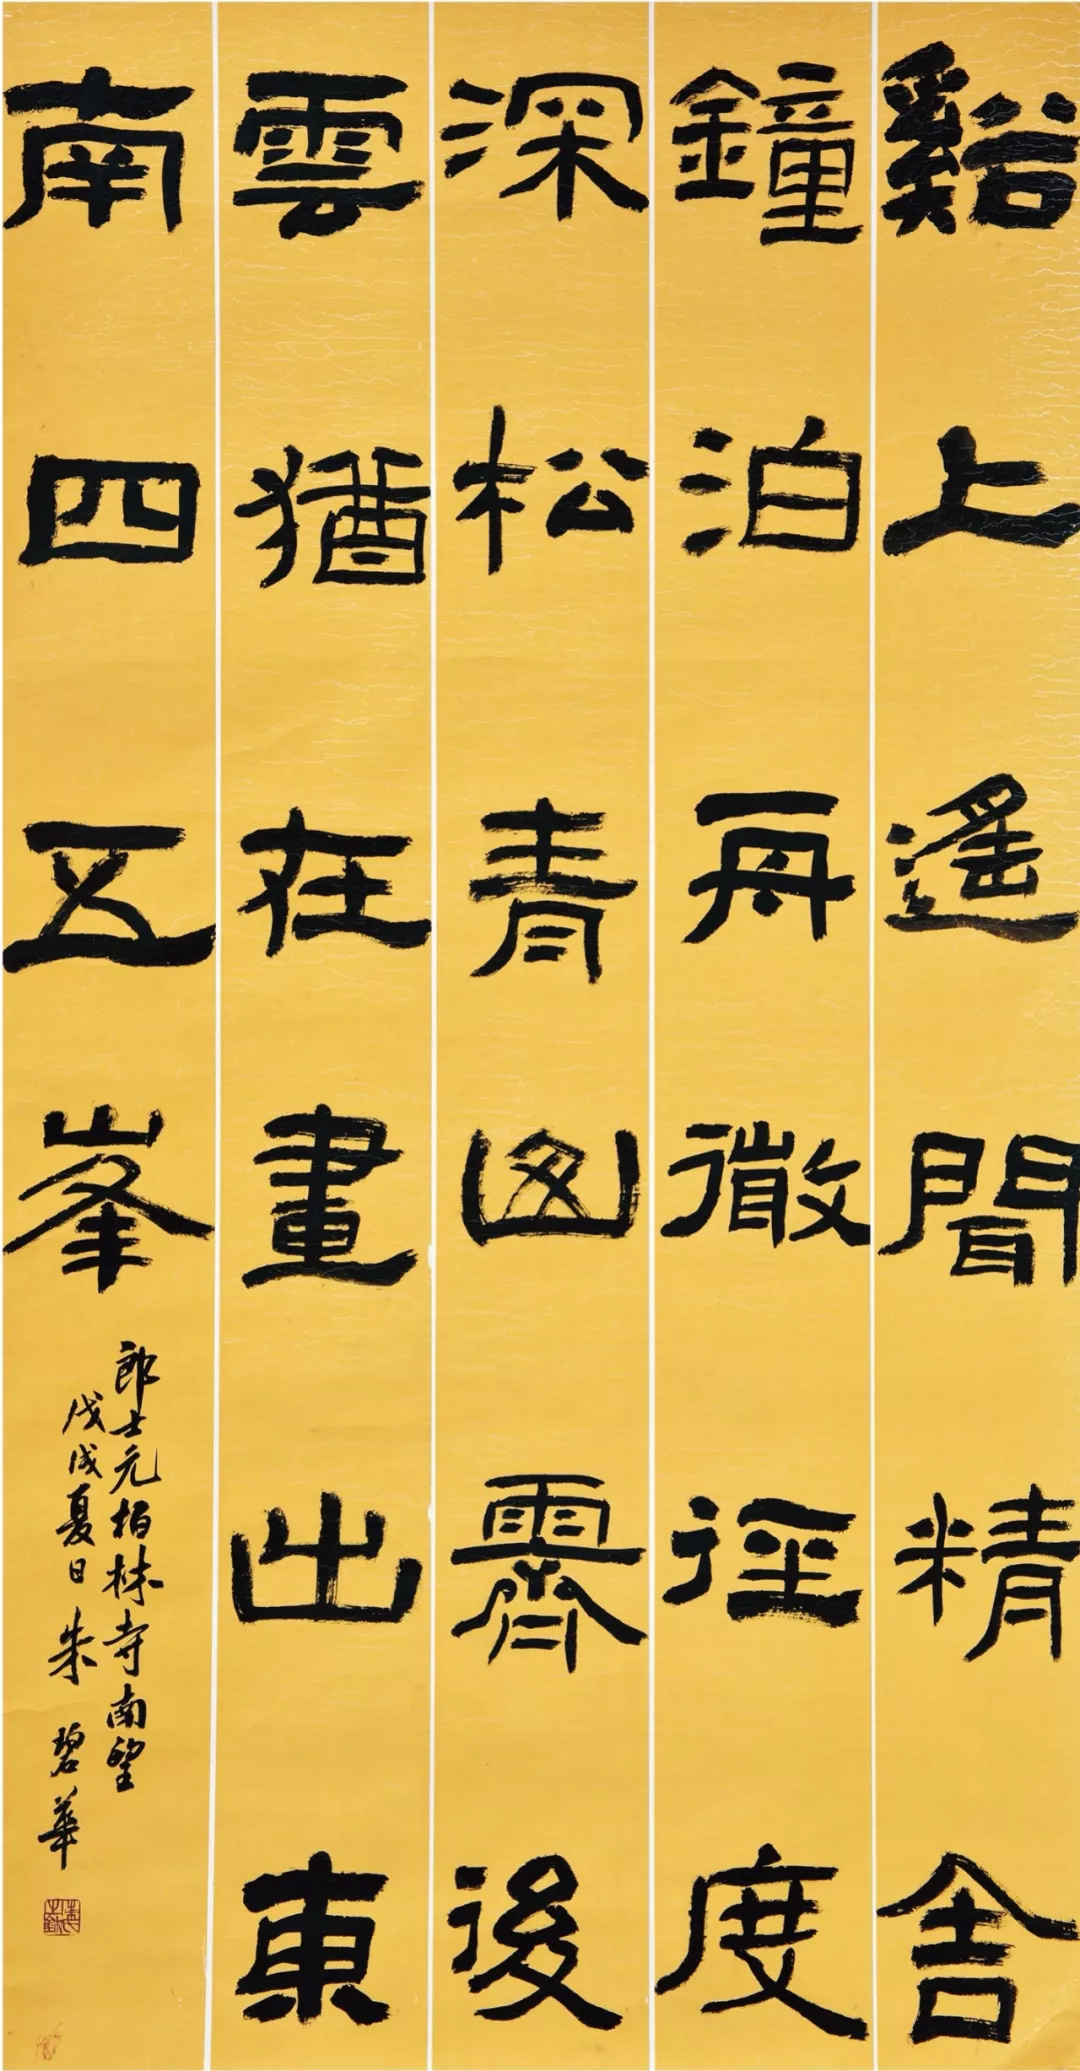 谿上遙聞精舍
鐘泊舟微徑度
深松青山霽後
雲猶在畫出東
南四五峯
郎士元柏林寺南望
戊戌夏日朱碧華